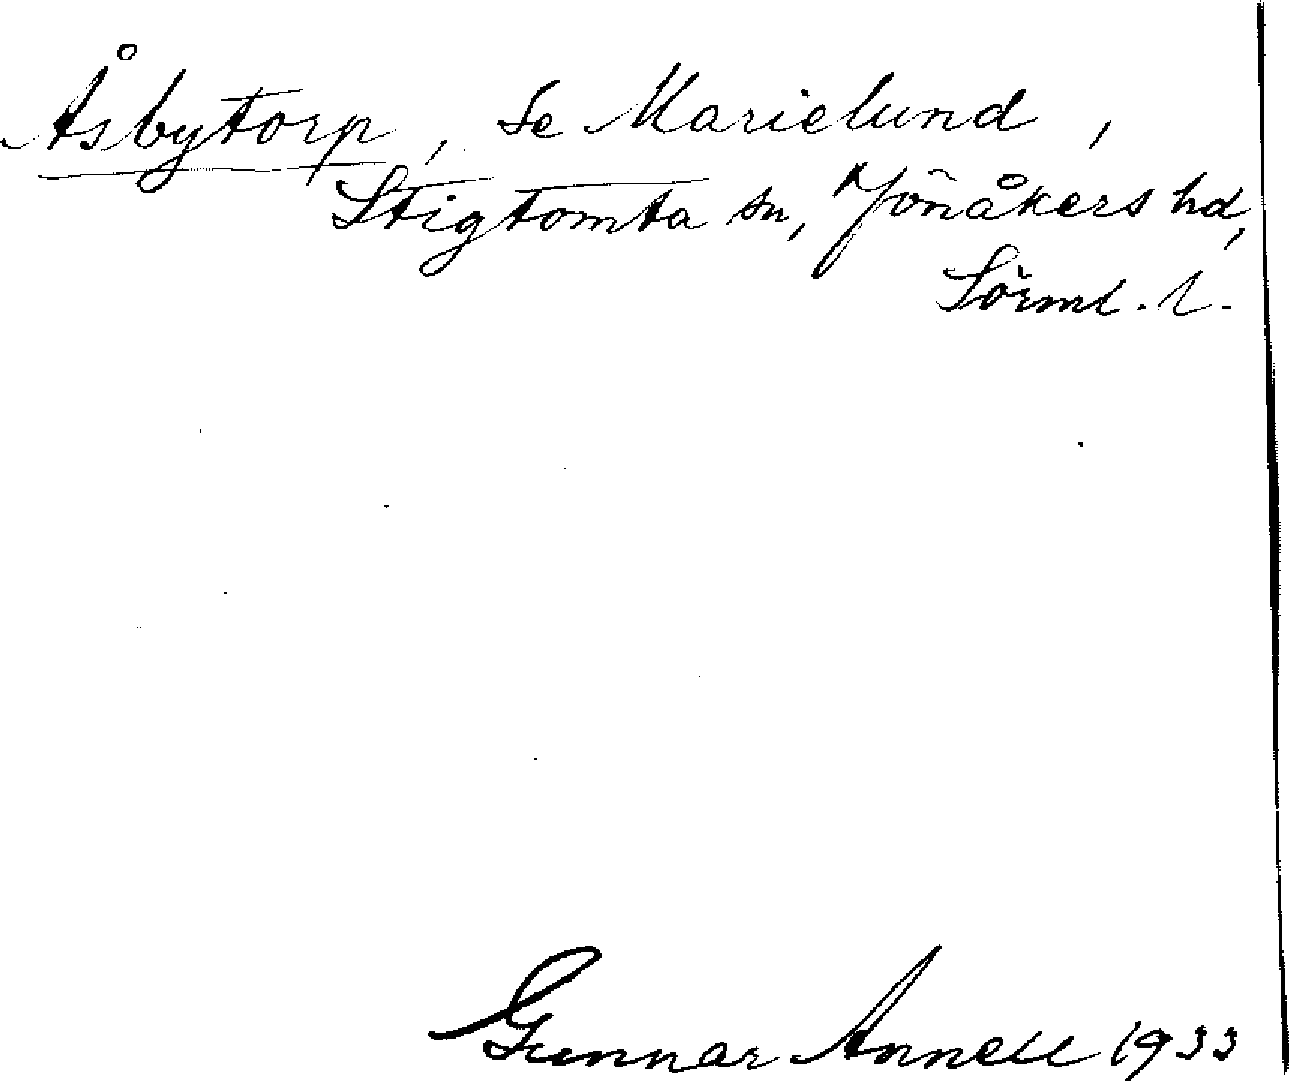 Åsbytorp, se Marielund,
Stigtomta sn, Jönåkers hd,
Sörml. l.
Gunnar Annell 1933